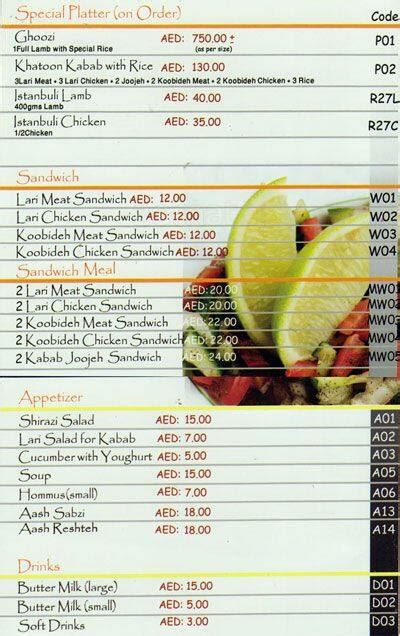 Special Platter (on Order) Code
Ghoozi AED: 750.00 ± P01
1Full Lamb with Special Rice (as per size)
Khatoon Kabab with Rice AED: 130.00 P02
3Lari Meat + 3 Lari Chicken + 2 Joojeh + 2 Koobideh Meat + 2 Koobideh Chicken + 3 Rice
Istanbuli Lamb AED: 40.00 R27L
400gms Lamb
Istanbuli Chicken AED: 35.00 R27C
1/2Chicken
Sandwich
Lari Meat Sandwich AED: 12.00 W01
Lari Chicken Sandwich AED: 12.00 W02
Koobideh Meat Sandwich AED: 12.00 W03
Koobideh Chicken Sandwich AED: 12.00 W04
Sandwich Meal
2 Lari Meat Sandwich AED: 20.00 MW01
2 Lari Chicken Sandwich AED: 20.00 MW02
2 Koobideh Meat Sandwich AED: 22.00 MW03
2 Koobideh Chicken Sandwich AED: 22.00 MW04
2 Kabab Joojeh Sandwich AED: 24.00 MW05
Appetizer
Shirazi Salad AED: 15.00 A01
Lari Salad for Kabab AED: 7.00 A02
Cucumber with Youghurt AED: 5.00 A03
Soup AED: 15.00 A05
Hommus(small) AED: 7.00 A06
Aash Sabzi AED: 18.00 A13
Aash Reshteh AED: 18.00 A14
Drinks
Butter Milk (large) AED: 15.00 D01
Butter Milk (small) AED: 5.00 D02
Soft Drinks AED: 3.00 D03